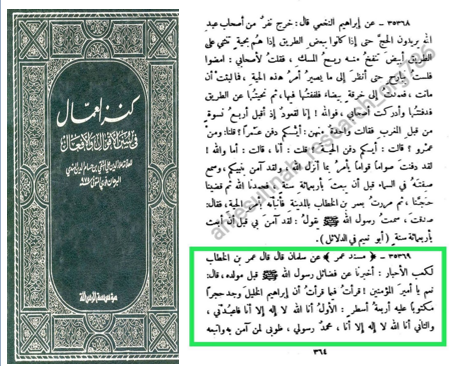 كنز العمال
في سنن الأقوال والأفعال
مؤسسة الرسالة
٣٥٣٦٨ - عن إبراهيم النخعي قال: خرج نفر من أصحاب عبد
الله يريدون الحج حتى إذا كانوا ببعض الطريق إذا هم بحية تثني على
الطريق أبيض تنفح منه ريح المسك، فقلت لأصحابي: امضوا
فلست ببارح حتى أنظر إلى ما يصير أمر هذه الحية، فما لبثت أن
ماتت، فعمدت إلى خرقة بيضاء فلففتها فيها، ثم نحيتها عن الطريق
فدفنتها وأدركت أصحابي، فوالله! إنا لقعود إذ أقبل أربع نسوة
من قبل المغرب فقالت واحدة منهن: أيكم دفن عمرا؟ قلنا: ومن
عمرو؟ قالت: أيكم دفن الحية؟ قلت: أنا، قالت: أما والله!
لقد دفنت صواما قواما يأمر بما أنزل الله، ولقد آمن بنبيكم وسمع
صفته في السماء قبل أن يبعث بأربعمائة سنة، فحمدنا الله ثم قضينا
حجنا، ثم مررت بعمر بن الخطاب بالمدينة فأنبأته أمر الحية، فقال:
صدقت، سمعت رسول الله ﷺ يقول: لقد آمن بي قبل أن أبعث
بأربعمائة سنة (أبو نعيم في الدلائل).
٣٥٣٦٩ - ﴿مسند عمر﴾ عن سلمان قال قال عمر بن الخطاب
لكعب الأحبار: أخبرنا عن فضائل رسول الله ﷺ قبل مولده، قال:
نعم يا أمير المؤمنين! قرأت فيما قرأت أن إبراهيم الخليل وجد حجرا
مكتوبا عليه أربعة أسطر: الأول أنا الله لا إله إلا أنا فاعبدني،
والثاني أنا الله لا إله إلا أنا، محمد رسولي، طوبى لمن آمن به واتبعه
٣٦٤